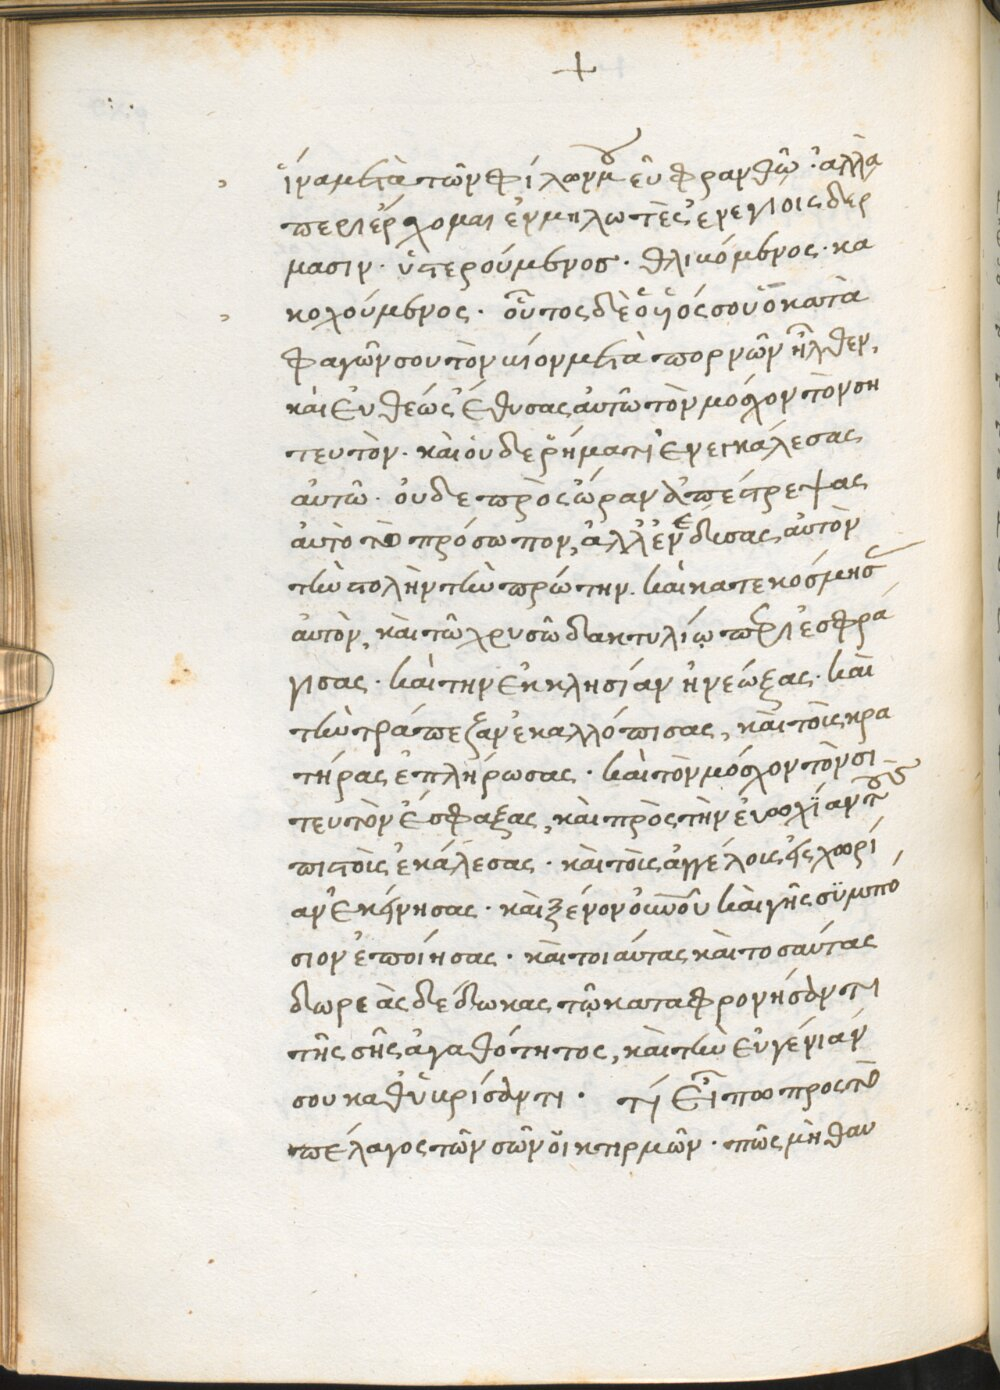 +
ἵνα μετὰ τῶν φίλων μου εὐφρανθῶ· ἀλλὰ
περιέρχομαι ἐν μηλωτὲς ἐν ἐγίοις δερ
μασιν· ὑστερούμενος· θλιβόμενος· κα
κοχούμενος· οὗτος δὲ ὁ υἱός σου ὁ κατα
φαγῶν σου τὸν βίον μετὰ πορνῶν ἦλθεν,
καὶ εὐθέως ἔθυσας αὐτῶ τὸν μόσχον τὸν ση
τευτόν· καὶ οὐδε ῥήματι ἐνεκάλεσας
αὐτῶ· οὐδε πρὸς ὥραν ἀπέστρεψας
αὐτὸ τὸ πρόσωπον, ἀλλ' ἐνέδισας αὐτὸν
τὴν στολὴν τὴν πρώτην. καὶ κατεκόσμησ
αὐτὸν, καὶ τῶ χρυσῶ δακτυλίῳ περιεσφρά
γισας· καὶ την ἐκκλησίαν ἠνέωξας· καὶ
τὴν τράπεζαν ἐκαλλόπισας, καὶ τοὶς κρα
τήρας ἐπλήρωσας· καὶ τὸν μόσχον τὸν σι
τευτὸν ἔσφαξας, καὶ πρὸς τὴν εὐωχίαν τοὺς
πιστοὶς ἐκάλεσας· καὶ τοὶς ἀγγέλοις εἰς χωρί
αν ἐκίνησας· καὶ ξένον οὐνοῦ καὶ γῆς σϋμπό
σιον ἐποίησας· καὶ τοιαύτας καὶ τοσαύτας
δωρεὰς δέδωκας τῷ καταφρονήσαντι
τῆς σῆς ἀγαθότητος, καὶ τὴν εὐγένιάν
σου καθϋβρίσαντι· τί εἴπω προς τὸ
πέλαγος τῶν σῶν οἰκτιρμῶν· πῶς μὴ θαυ